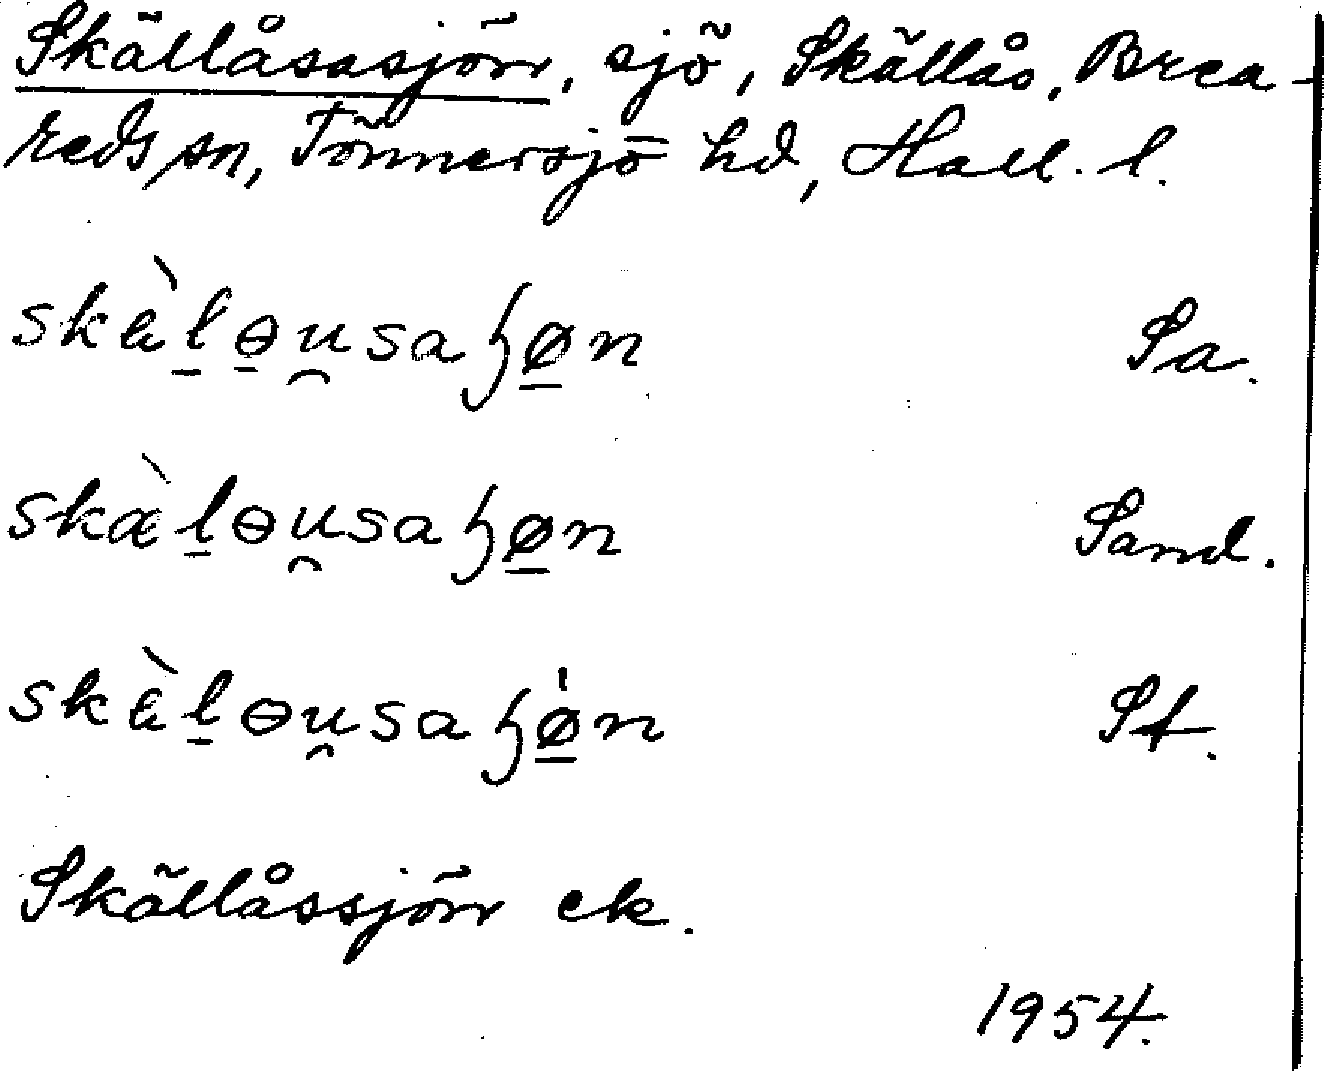 Skällåsasjön, sjö, Skällås, Brea-
reds sn, Tönnersjö hd, Hall. l.
skæ̀l̠ɵ̠u̯saɧø̠n Sa.
skæ̀l̠ɵu̯saɧø̠n Sand.
skæ̀l̠ɵu̯saɧø̠̍n St.
Skällåssjön ek.
1954.